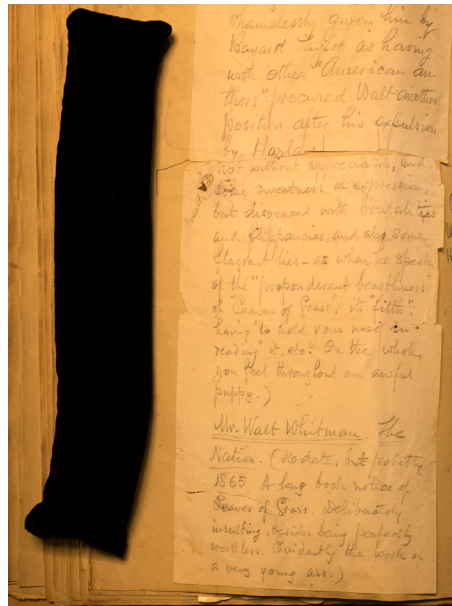 shamelessly given him by
Bayard Taylor as having
with other "American au-
thors" procured Walt another
position after his expulsion
by Harlan!
not without appreciation, and
some sweetness of expression,
but disgraced with brutalities
and flippancies, and also some
flagrant lies – as when he speaks
of the "preponderant beastliness"
of "Leaves of Grass"; its "filth";
having "to hold your nose in
reading" it, etc. On the whole,
you feel throughout an awful
puppy.)
Mr. Walt Whitman The
Nation. (No date, but probably
1865. A long book notice of
Leaves of Grass. Deliberately
insulting, besides being perfectly
worthless. Evidently the work of
a very young ass.)